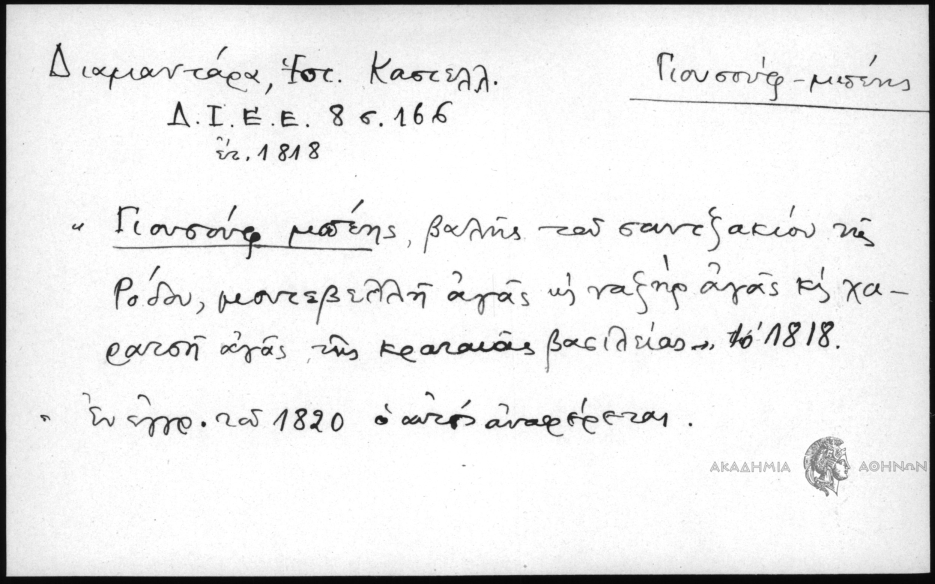 Διαμαντάρα, Ἱστ. Καστελλ.
Γιουσούφ-μπέης
Δ.Ι.Ε.Ε. 8 σ. 166
ἔτ. 1818
« Γιουσούφ μπέης, βαλῆς τοῦ σαντζακίου τῆς
Ρόδου, μουτεβελλῆ ἀγᾶς κ ναζὴρ ἀγᾶς κ χα-
ρατσῆ ἀγᾶς τῆς κραταιᾶς βασιλείας », τὸ 1818.
« Ἐν ἐγγρ. τοῦ 1820 ὁ αὐτὸς ἀναφέρεται.
ΑΚΑΔΗΜΙΑ ΑΘΗΝΩΝ